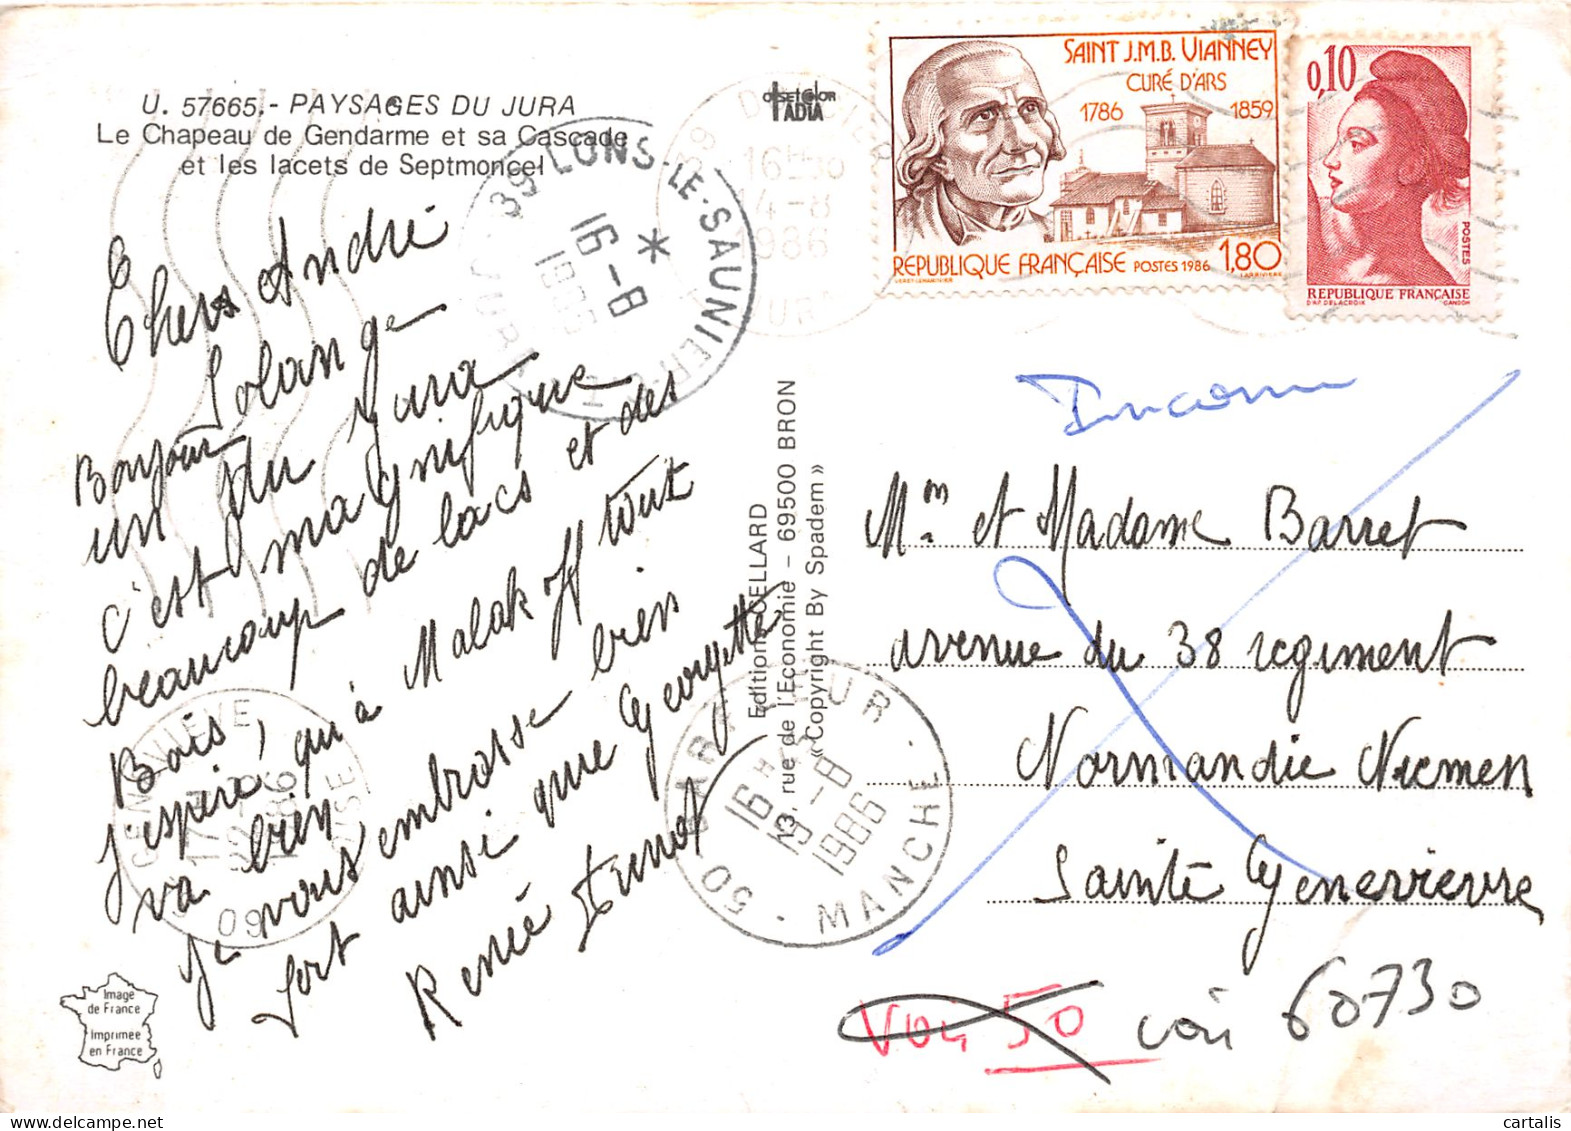 U. 57665.- PAYSAGES DU JURA
Le Chapeau de Gendarme et sa Cascade
et les lacets de Septmoncel
Chers André
Solange
Bonjour
un du Jura
c'est magnifique
beaucoup de lacs et des
Bois, j'espère, qu'à Malakoff tout
va bien
Je vous embrasse bien
fort ainsi que Georgette
Renée
Image
de France
Imprimée
en France
OFFSET COLOR
IADIA
Editions CELLARD
13, rue de l'Economie – 69500 BRON
«Copyright By Spadem»
39 LONS-LE-SAUNIER
16-8
JURA
39
16H
14-8
1986
JURA
50 BARFLEUR
16H
19-8
1986
MANCHE
GENEVIÈVE
17H
22-8
1986
OISE
60
SAINT J.M.B. VIANNEY
CURÉ D'ARS
1786 1859
REPUBLIQUE FRANÇAISE POSTES 1986 1,80
0,10
POSTES
REPUBLIQUE FRANÇAISE
D'AP. DELACROIX GANDON
Inconnu
Mm et Madame Barret
avenue du 38 regiment
Normandie Niemen
Sainte Genevieve
Voir 50 voir 60730